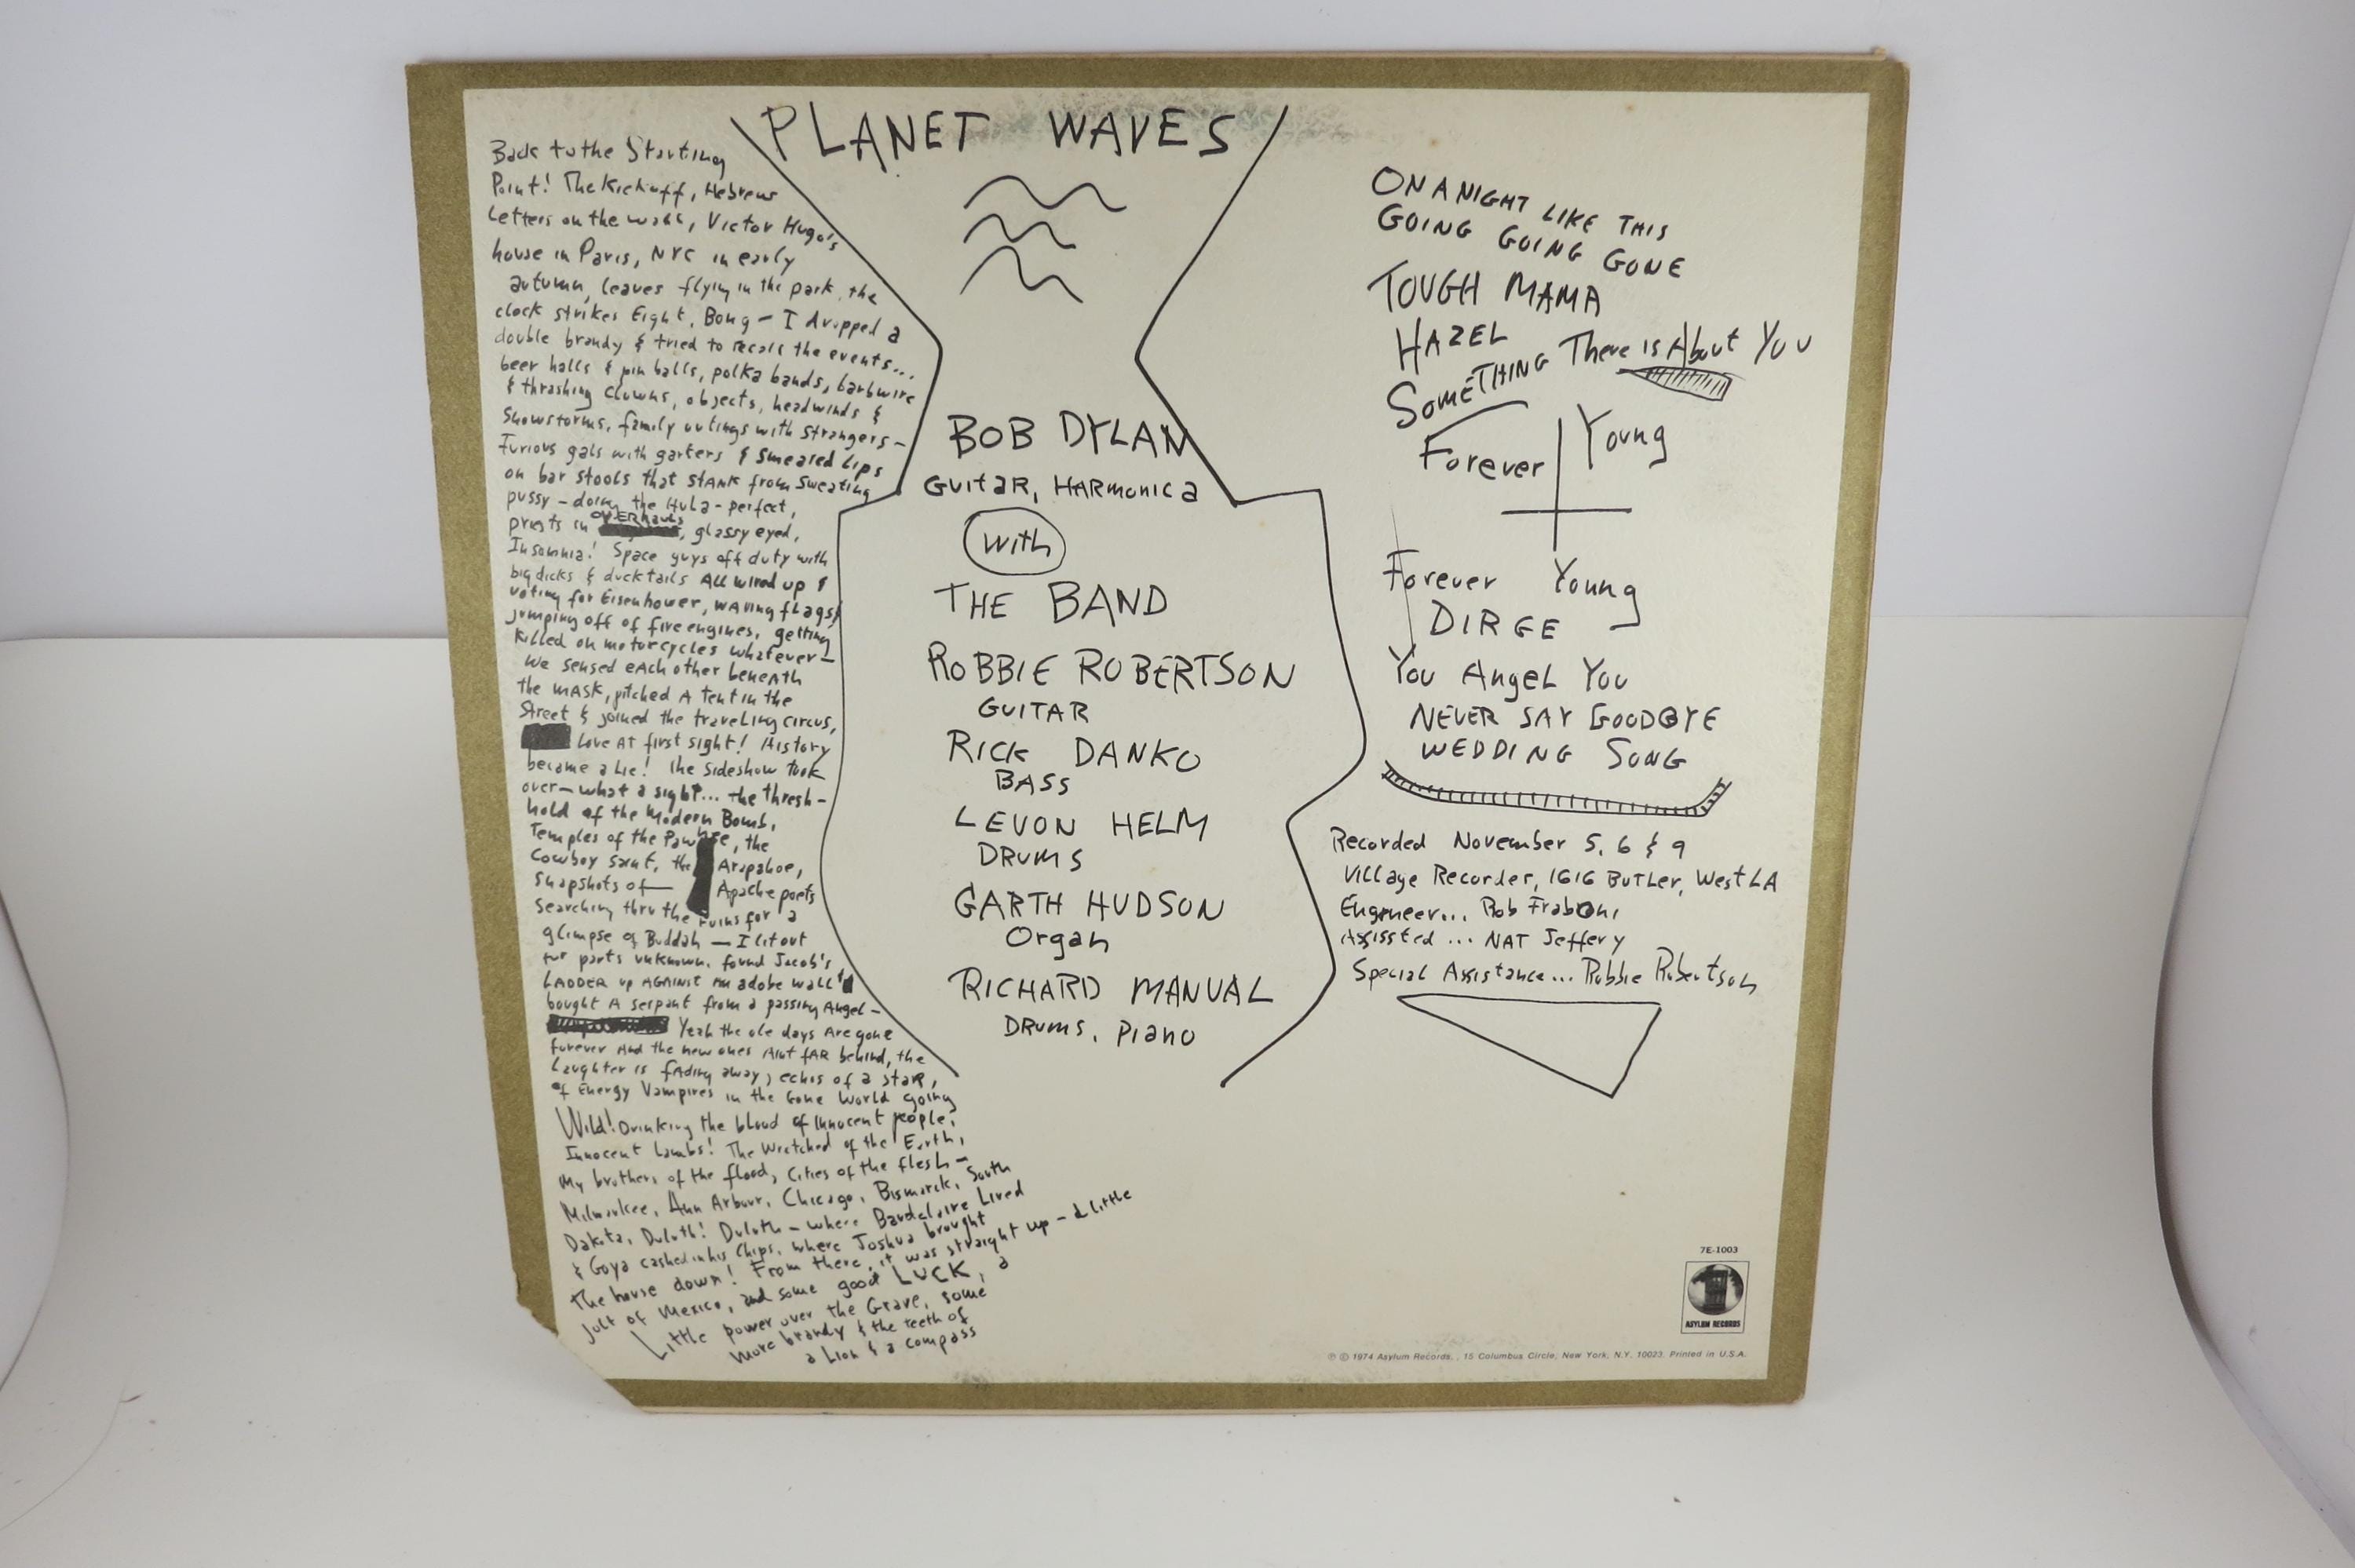 PLANET WAVES
Back to the Starting
Point! The Kickoff, Hebrew
Letters on the wall, Victor Hugo's
house in Paris, NYC in early
autumn, leaves flying in the park, the
clock strikes Eight, Bong - I dropped a
double brandy & tried to recall the events...
beer halls & pin balls, polka bands, barbwire
& thrashing clowns, objects, headwinds &
Snowstorms, family outings with strangers -
Furious gals with garters & smeared Lips
on bar stools that stank from sweating
pussy - doing the Hula - perfect,
priests in OVERhauls, glassy eyed,
Insomnia! Space guys off duty with
big dicks & ducktails All wired up &
voting for Eisenhower, waving flags,
jumping off of fire engines, getting
killed on motorcycles whatever -
We sensed each other beneath
the mask, pitched A tent in the
Street & joined the traveling circus,
Love At first sight! History
became a Lie! the sideshow took
over - what a sight... the thresh-
hold of the Modern Bomb,
Temples of the Pawnee, the
Cowboy saint, the Arapahoe,
Snapshots of - Apache poets
searching thru the ruins for a
glimpse of Buddah - I lit out
for parts unknown, found Jacob's
LADDER up AGAINST an adobe wall &
bought A serpant from a passing Angel -
Yeah the ole days Are gone
forever And the new ones Aint fAR behind, the
Laughter is fAding away, echos of a star,
of Energy Vampires in the Gone World going
Wild! Drinking the blood of Innocent people,
Innocent Lambs! The Wretched of the Earth,
My brothers of the flood, Cities of the flesh -
Milwaukee, Ann Arbour, Chicago, Bismarck, South
Dakota, Duluth! Duluth - where Baudelaire Lived
& Goya cashed in his Chips, where Joshua brought
the house down! From there, it was straight up - a Little
jolt of Mexico, and some good LUCK, a
Little power over the Grave, some
more brandy & the teeth of
a Lion & a compass
BOB DYLAN
GUitaR, HARmonica
with
THE BAND
ROBBIE ROBERTSON
GUITAR
RICK DANKO
BASS
LEVON HELM
DRUMS
GARTH HUDSON
Organ
RICHARD MANUAL
DRUMS, Piano
ON A NIGHT LIKE THIS
GOING GOING GONE
TOUGH MAMA
HAZEL
SOMETHING There is About You
Forever Young
Forever Young
DIRGE
You Angel You
NEVER SAY GOODBYE
WEDDING SONG
Recorded November 5, 6 & 9
Village Recorder, 1616 BUTLer, West LA
Engineer... Rob Fraboni
Assissted ... NAT Jeffery
Special Assistance... Robbie Robertson
7E-1003
ASYLUM RECORDS
℗ © 1974 Asylum Records, , 15 Columbus Circle, New York, N.Y. 10023. Printed in U.S.A.